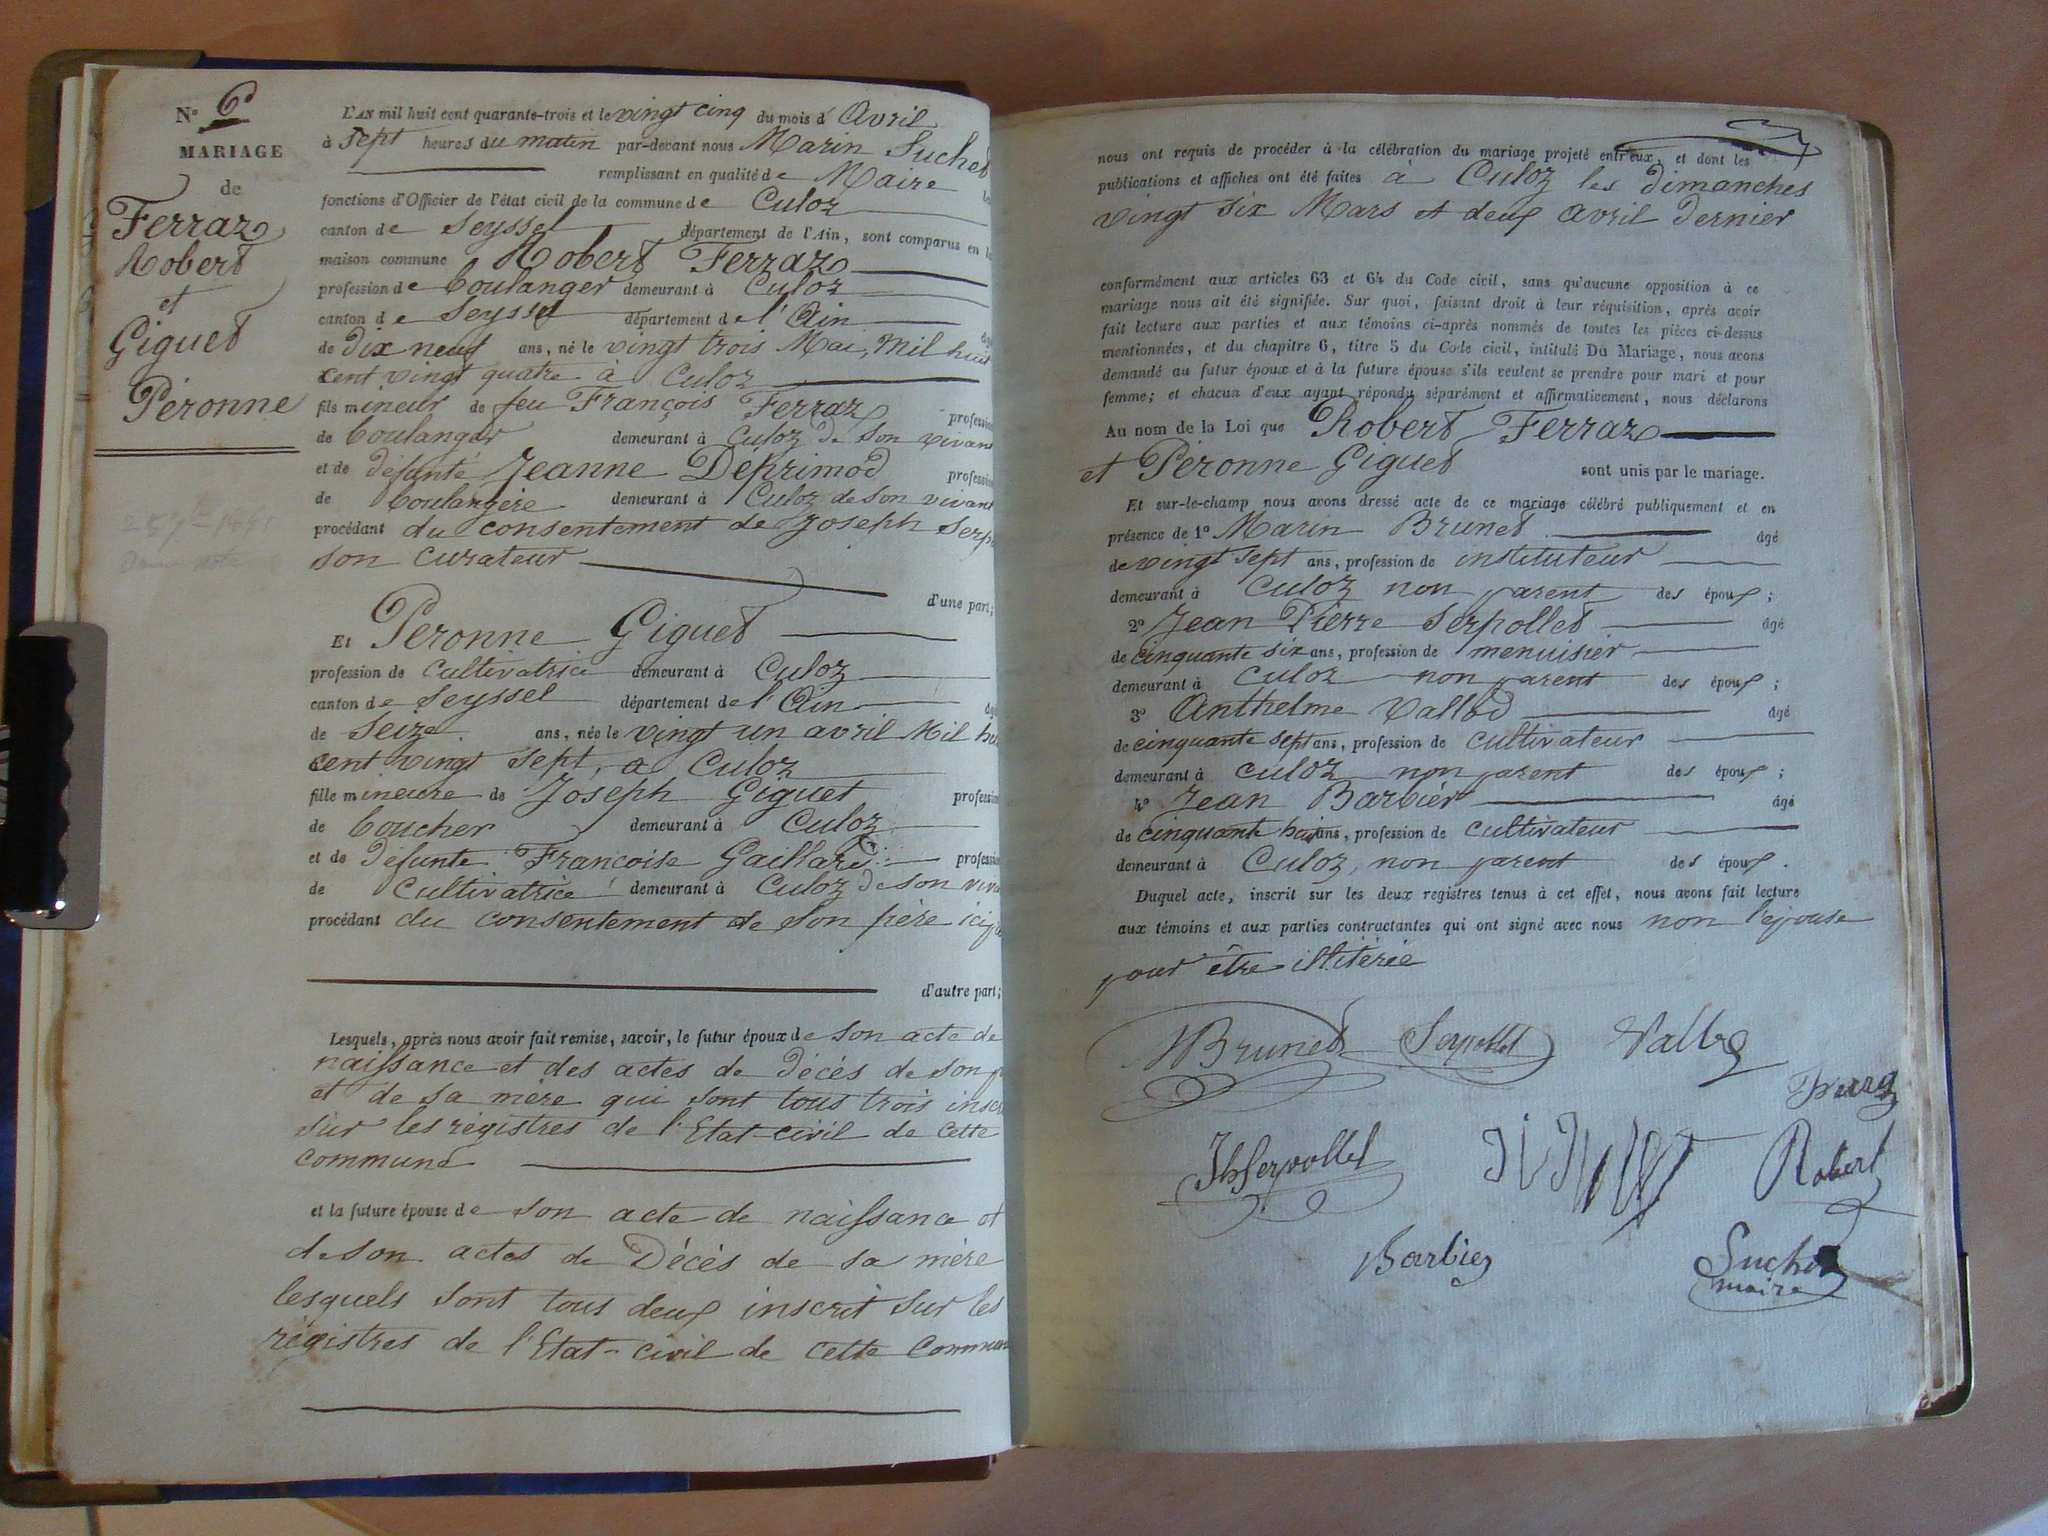 N° 6
MARIAGE
de
Ferraz
Robert
et
Giguet
Péronne
L'AN mil huit cent quarante-trois et le vingt cinq du mois d'Avril
à sept heures du matin par-devant nous Marin Suchet
remplissant en qualité de Maire les
fonctions d'Officier de l'état civil de la commune de Culoz
canton de Seyssel département de l'Ain, sont comparus en la
maison commune Robert Ferraz
profession de boulanger demeurant à Culoz
canton de Seyssel département de l'Ain âgé
de dix neuf ans, né le vingt trois Mai, Mil huit
cent vingt quatre à Culoz
fils mineur de feu François Ferraz profession
de boulanger demeurant à Culoz de son vivant
et de défunte Jeanne Déprimod profession
de boulangère demeurant à Culoz de son vivant
procédant du consentement de Joseph Serp
son curateur
d'une part;
Et Péronne Giguet
profession de cultivatrice demeurant à Culoz
canton de Seyssel département de l'Ain âgé
de Seize ans, née le vingt un avril Mil hui
cent vingt sept, a Culoz
fille mineure de Joseph Giguet profession
de boucher demeurant à Culoz
et de défunte Francoise Gaillard profession
de cultivatrice demeurant à Culoz de son viva
procédant du consentement de son père ici
d'autre part;
Lesquels, après nous avoir fait remise, savoir, le futur époux de son acte de
naissance et des actes de décés de son p
et de sa mère qui sont tous trois inscr
sur les registres de l'Etat-civil de cette
commune
et la future épouse de son acte de naissance et
de son actes de Décès de sa mère
lesquels sont tous deux inscrit sur les
registres de l'Etat-civil de cette commun
nous ont requis de procéder à la célébration du mariage projeté entr'eux, et dont les
publications et affiches ont été faites à Culoz les dimanches
vingt six Mars et deux avril dernier
conformément aux articles 63 et 64 du Code civil, sans qu'aucune opposition à ce
mariage nous ait été signifiée. Sur quoi, faisant droit à leur réquisition, après avoir
fait lecture aux parties et aux témoins ci-après nommés de toutes les pièces ci-dessus
mentionnées, et du chapitre 6, titre 5 du Code civil, intitulé Du Mariage, nous avons
demandé au futur époux et à la future épouse s'ils veulent se prendre pour mari et pour
femme; et chacun d'eux ayant répondu séparément et affirmativement, nous déclarons
Au nom de la Loi que Robert Ferraz
et Péronne Giguet sont unis par le mariage.
Et sur-le-champ nous avons dressé acte de ce mariage célébré publiquement et en
présence de 1° Marin Brunet âgé
de vingt sept ans, profession de instituteur
demeurant à Culoz non parent des époux;
2° Jean Pierre Serpollet âgé
de cinquante six ans, profession de menuisier
demeurant à Culoz non parent des époux;
3° Anthelme Vallod âgé
de cinquante sept ans, profession de cultivateur
demeurant à culoz non parent des époux;
4° Jean Barbier âgé
de cinquante huit ans, profession de cultivateur
demeurant à Culoz, non parent des époux.
Duquel acte, inscrit sur les deux registres tenus à cet effet, nous avons fait lecture
aux témoins et aux parties contractantes qui ont signé avec nous non l'epouse
pour être illitérée
MBrunet Serpollet Vallod
Ferraz
JhSerpollet Robert
Barbier Suchet
maire